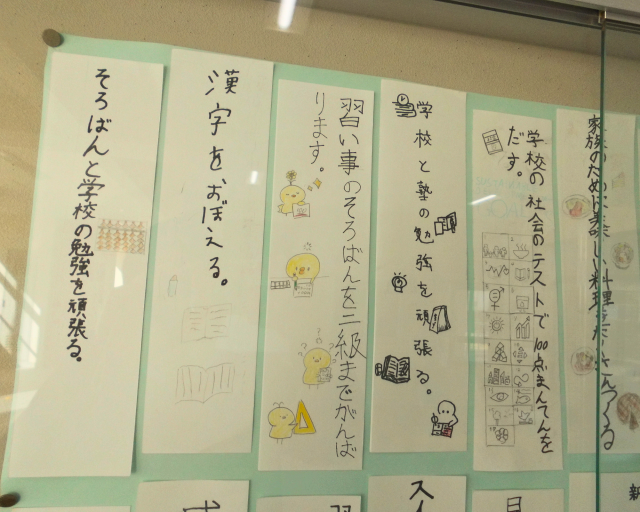 家族のために美味しい料理をたくさんつくる
学校の社会のテストで100点まんてんを
だす。
学校と塾の勉強を頑張る。
習い事のそろばんを二級までがんば
ります。
漢字をおぼえる。
そろばんと学校の勉強を頑張る。
新
目
スイ
習